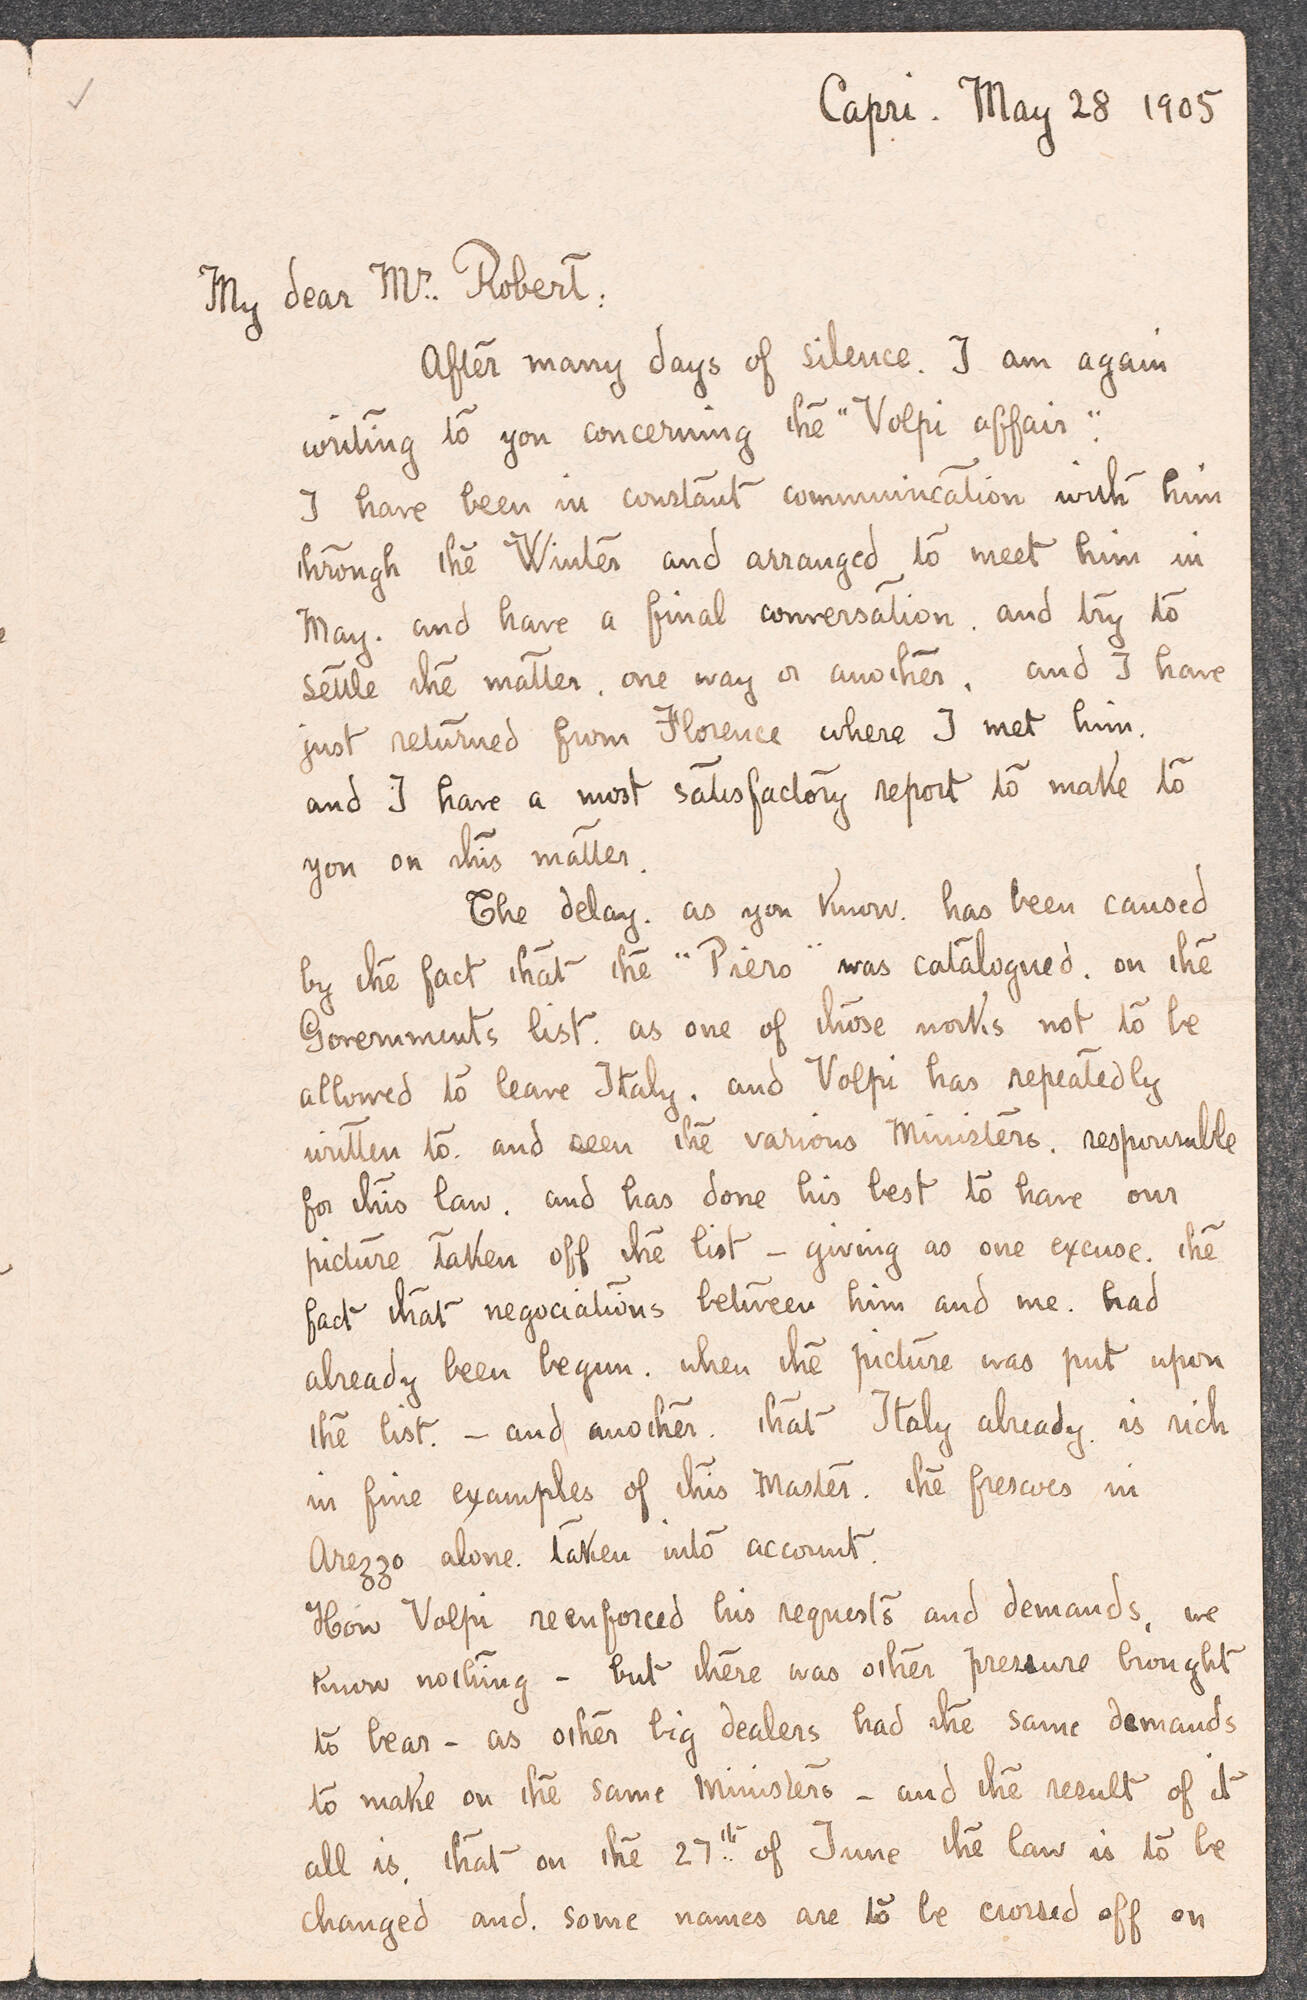 Capri. May 28 1905
My dear Mr. Robert:
After many days of silence. I am again
writing to you concerning the "Volpi affair".
I have been in constant communication with him
through the Winter and arranged to meet him in
May. and have a final conversation. and try to
settle the matter, one way or another, and I have
just returned from Florence where I met him.
and I have a most satisfactory report to make to
you on this matter.
The delay. as you know. has been caused
by the fact that the "Piero" was catalogued. on the
Governments list. as one of those works not to be
allowed to leave Italy. and Volpi has repeatedly
written to. and seen the various Ministers. responsable
for this law. and has done his best to have our
picture taken off the list – giving as one excuse. the
fact that negociations between him and me. had
already been begun. when the picture was put upon
the list. – and another. that Italy already. is rich
in fine examples of this Master. the frescoes in
Arezzo alone. taken into account.
How Volpi reenforced his requests and demands, we
know nothing – but there was other pressure brought
to bear – as other big dealers had the same demands
to make on the same Ministers – and the result of it
all is, that on the 27th of June the law is to be
changed and. some names are to be crossed off on